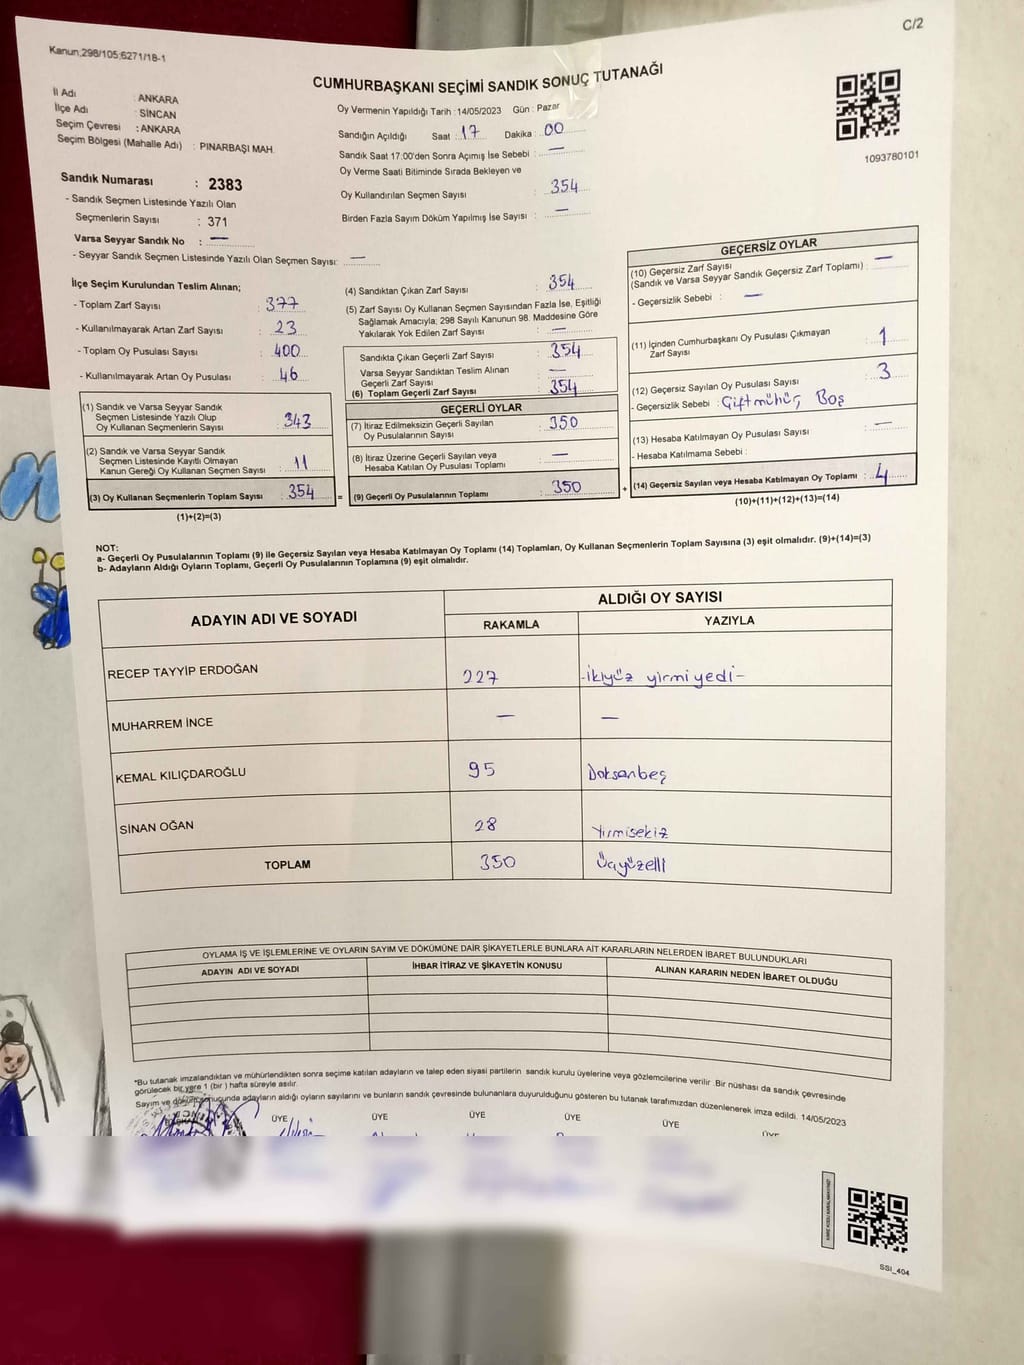 C/2
Kanun,298/105;6271/18-1
CUMHURBAŞKANI SEÇİMİ SANDIK SONUÇ TUTANAĞI
İl Adı : ANKARA
İlçe Adı : SİNCAN
Seçim Çevresi : ANKARA
Seçim Bölgesi (Mahalle Adı) : PINARBAŞI MAH.
Sandık Numarası : 2383
- Sandık Seçmen Listesinde Yazılı Olan
Seçmenlerin Sayısı : 371
Varsa Seyyar Sandık No : —
- Seyyar Sandık Seçmen Listesinde Yazılı Olan Seçmen Sayısı: —
Oy Vermenin Yapıldığı Tarih :14/05/2023 Gün : Pazar
Sandığın Açıldığı Saat : 17 Dakika : 00
Sandık Saat 17:00'den Sonra Açımış İse Sebebi : —
Oy Verme Saati Bitiminde Sırada Bekleyen ve
Oy Kullandırılan Seçmen Sayısı : 354
Birden Fazla Sayım Döküm Yapılmış İse Sayısı : —
1093780101
İlçe Seçim Kurulundan Teslim Alınan;
- Toplam Zarf Sayısı : 377
- Kullanılmayarak Artan Zarf Sayısı : 23
- Toplam Oy Pusulası Sayısı : 400
- Kullanılmayarak Artan Oy Pusulası : 46
(1) Sandık ve Varsa Seyyar Sandık
Seçmen Listesinde Yazılı Olup
Oy Kullanan Seçmenlerin Sayısı : 343
(2) Sandık ve Varsa Seyyar Sandık
Seçmen Listesinde Kayıtlı Olmayan
Kanun Gereği Oy Kullanan Seçmen Sayısı : 11
(3) Oy Kullanan Seçmenlerin Toplam Sayısı : 354 =
(1)+(2)=(3)
(4) Sandıktan Çıkan Zarf Sayısı : 354
(5) Zarf Sayısı Oy Kullanan Seçmen Sayısından Fazla İse, Eşitliği
Sağlamak Amacıyla; 298 Sayılı Kanunun 98. Maddesine Göre
Yakılarak Yok Edilen Zarf Sayısı : —
Sandıkta Çıkan Geçerli Zarf Sayısı : 354
Varsa Seyyar Sandıktan Teslim Alınan
Geçerli Zarf Sayısı : —
(6) Toplam Geçerli Zarf Sayısı : 354
GEÇERLİ OYLAR
(7) İtiraz Edilmeksizin Geçerli Sayılan
Oy Pusulalarının Sayısı : 350
(8) İtiraz Üzerine Geçerli Sayılan veya
Hesaba Katılan Oy Pusulası Toplamı : —
(9) Geçerli Oy Pusulalarının Toplamı : 350 +
GEÇERSİZ OYLAR
(10) Geçersiz Zarf Sayısı : —
(Sandık ve Varsa Seyyar Sandık Geçersiz Zarf Toplamı)
- Geçersizlik Sebebi : —
(11) İçinden Cumhurbaşkanı Oy Pusulası Çıkmayan
Zarf Sayısı : 1
(12) Geçersiz Sayılan Oy Pusulası Sayısı : 3
- Geçersizlik Sebebi : Çift mühür Boş
(13) Hesaba Katılmayan Oy Pusulası Sayısı : —
- Hesaba Katılmama Sebebi :
(14) Geçersiz Sayılan veya Hesaba Katılmayan Oy Toplamı : 4
(10)+(11)+(12)+(13)=(14)
NOT:
a- Geçerli Oy Pusulalarının Toplamı (9) ile Geçersiz Sayılan veya Hesaba Katılmayan Oy Toplamı (14) Toplamları, Oy Kullanan Seçmenlerin Toplam Sayısına (3) eşit olmalıdır. (9)+(14)=(3)
b- Adayların Aldığı Oyların Toplamı, Geçerli Oy Pusulalarının Toplamına (9) eşit olmalıdır.
ADAYIN ADI VE SOYADI ALDIĞI OY SAYISI
RAKAMLA YAZIYLA
RECEP TAYYİP ERDOĞAN 227 -ikiyüz yirmiyedi-
MUHARREM İNCE — —
KEMAL KILIÇDAROĞLU 95 Doksanbeş
SİNAN OĞAN 28 Yirmisekiz
TOPLAM 350 Üçyüzelli
OYLAMA İŞ VE İŞLEMLERİNE VE OYLARIN SAYIM VE DÖKÜMÜNE DAİR ŞİKAYETLERLE BUNLARA AİT KARARLARIN NELERDEN İBARET BULUNDUKLARI
ADAYIN ADI VE SOYADI İHBAR İTİRAZ VE ŞİKAYETİN KONUSU ALINAN KARARIN NEDEN İBARET OLDUĞU
*Bu tutanak imzalandıktan ve mühürlendikten sonra seçime katılan adayların ve talep eden siyasi partilerin sandık kurulu üyelerine veya gözlemcilerine verilir .Bir nüshası da sandık çevresinde
görülecek bir yere 1 (bir ) hafta süreyle asılır.
Sayım ve döküm sonucunda adayların aldığı oyların sayılarını ve bunların sandık çevresinde bulunanlara duyurulduğunu gösteren bu tutanak tarafımızdan düzenlenerek imza edildi. 14/05/2023
ÜYE ÜYE ÜYE ÜYE ÜYE ÜYE
SSI_404